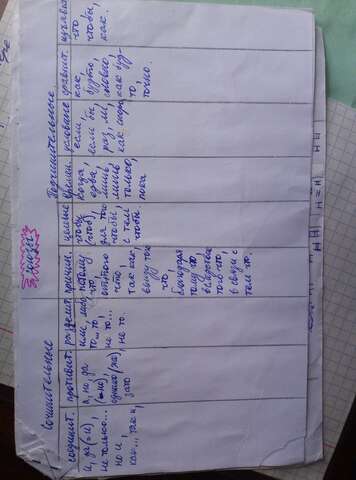 Союзы
Сочинительные
Подчинительные
соединит.
и, да (=и)
не только...
но и,
как... так и,
противит.
а, но, да
(=но),
однако (же),
зато
разделит.
или, либо
то... то,
не то...
не то.
причин.
потому
что,
оттого
что,
так как,
ввиду того
что,
благодаря
тому что,
вследствие
того что,
в связи с
тем что.
целевые
чтобы
(чтоб),
для того
чтобы,
с тем
чтобы
времен.
когда,
едва,
лишь,
лишь
только,
пока
условные
если,
если бы,
раз,
как скоро
сравнит.
как,
будто,
словно,
как буд-
то,
точно.
изъявит.
что,
чтобы,
как.